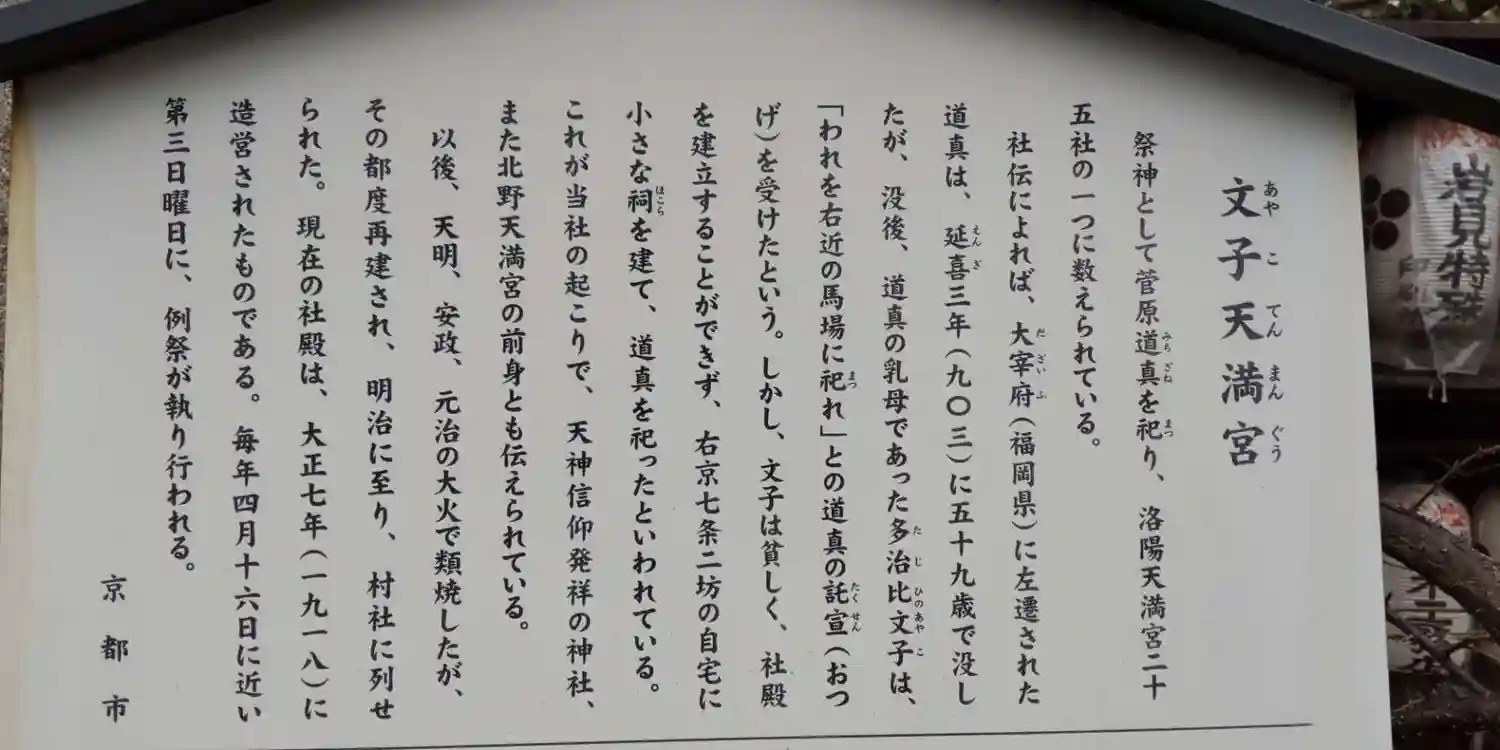 文子天満宮
祭神として菅原道真を祀り、洛陽天満宮二十
五社の一つに数えられている。
社伝によれば、大宰府(福岡県)に左遷された
道真は、延喜三年(九〇三)に五十九歳で没し
たが、没後、道真の乳母であった多治比文子は、
「われを右近の馬場に祀れ」との道真の託宣(おつ
げ)を受けたという。しかし、文子は貧しく、社殿
を建立することができず、右京七条二坊の自宅に
小さな祠を建て、道真を祀ったといわれている。
これが当社の起こりで、天神信仰発祥の神社、
また北野天満宮の前身とも伝えられている。
以後、天明、安政、元治の大火で類焼したが、
その都度再建され、明治に至り、村社に列せ
られた。現在の社殿は、大正七年(一九一八)に
造営されたものである。毎年四月十六日に近い
第三日曜日に、例祭が執り行われる。
京都市
岩見特殊